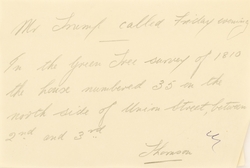 Mr Trump called Friday evening
In the Green Tree survey of 1810
the house numbered 35 in the
north side of Union Street, between
2nd and 3rd
Thomson